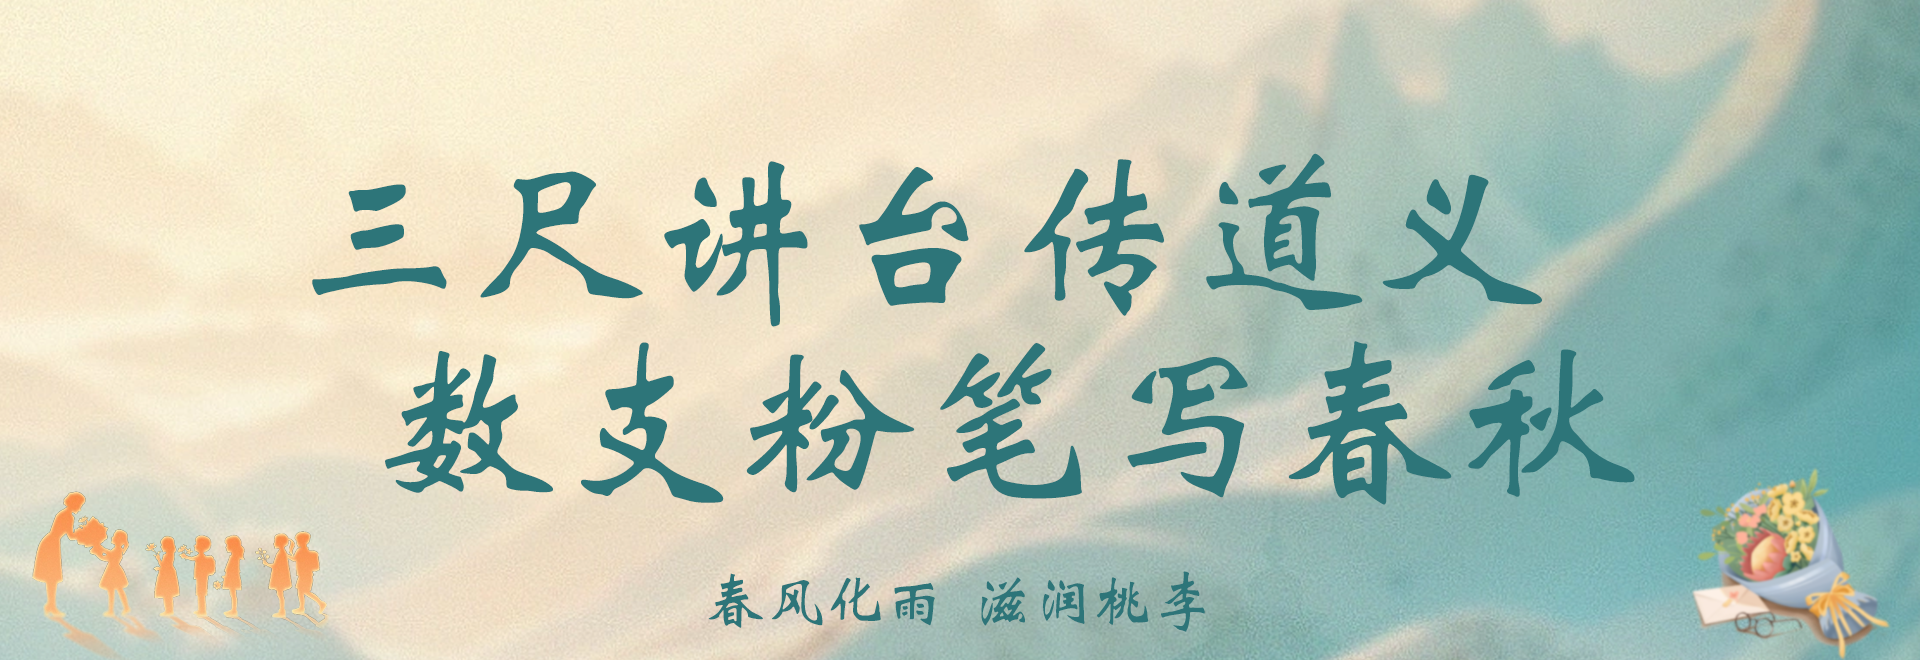 三尺讲台传道义
数支粉笔写春秋
春风化雨 滋润桃李